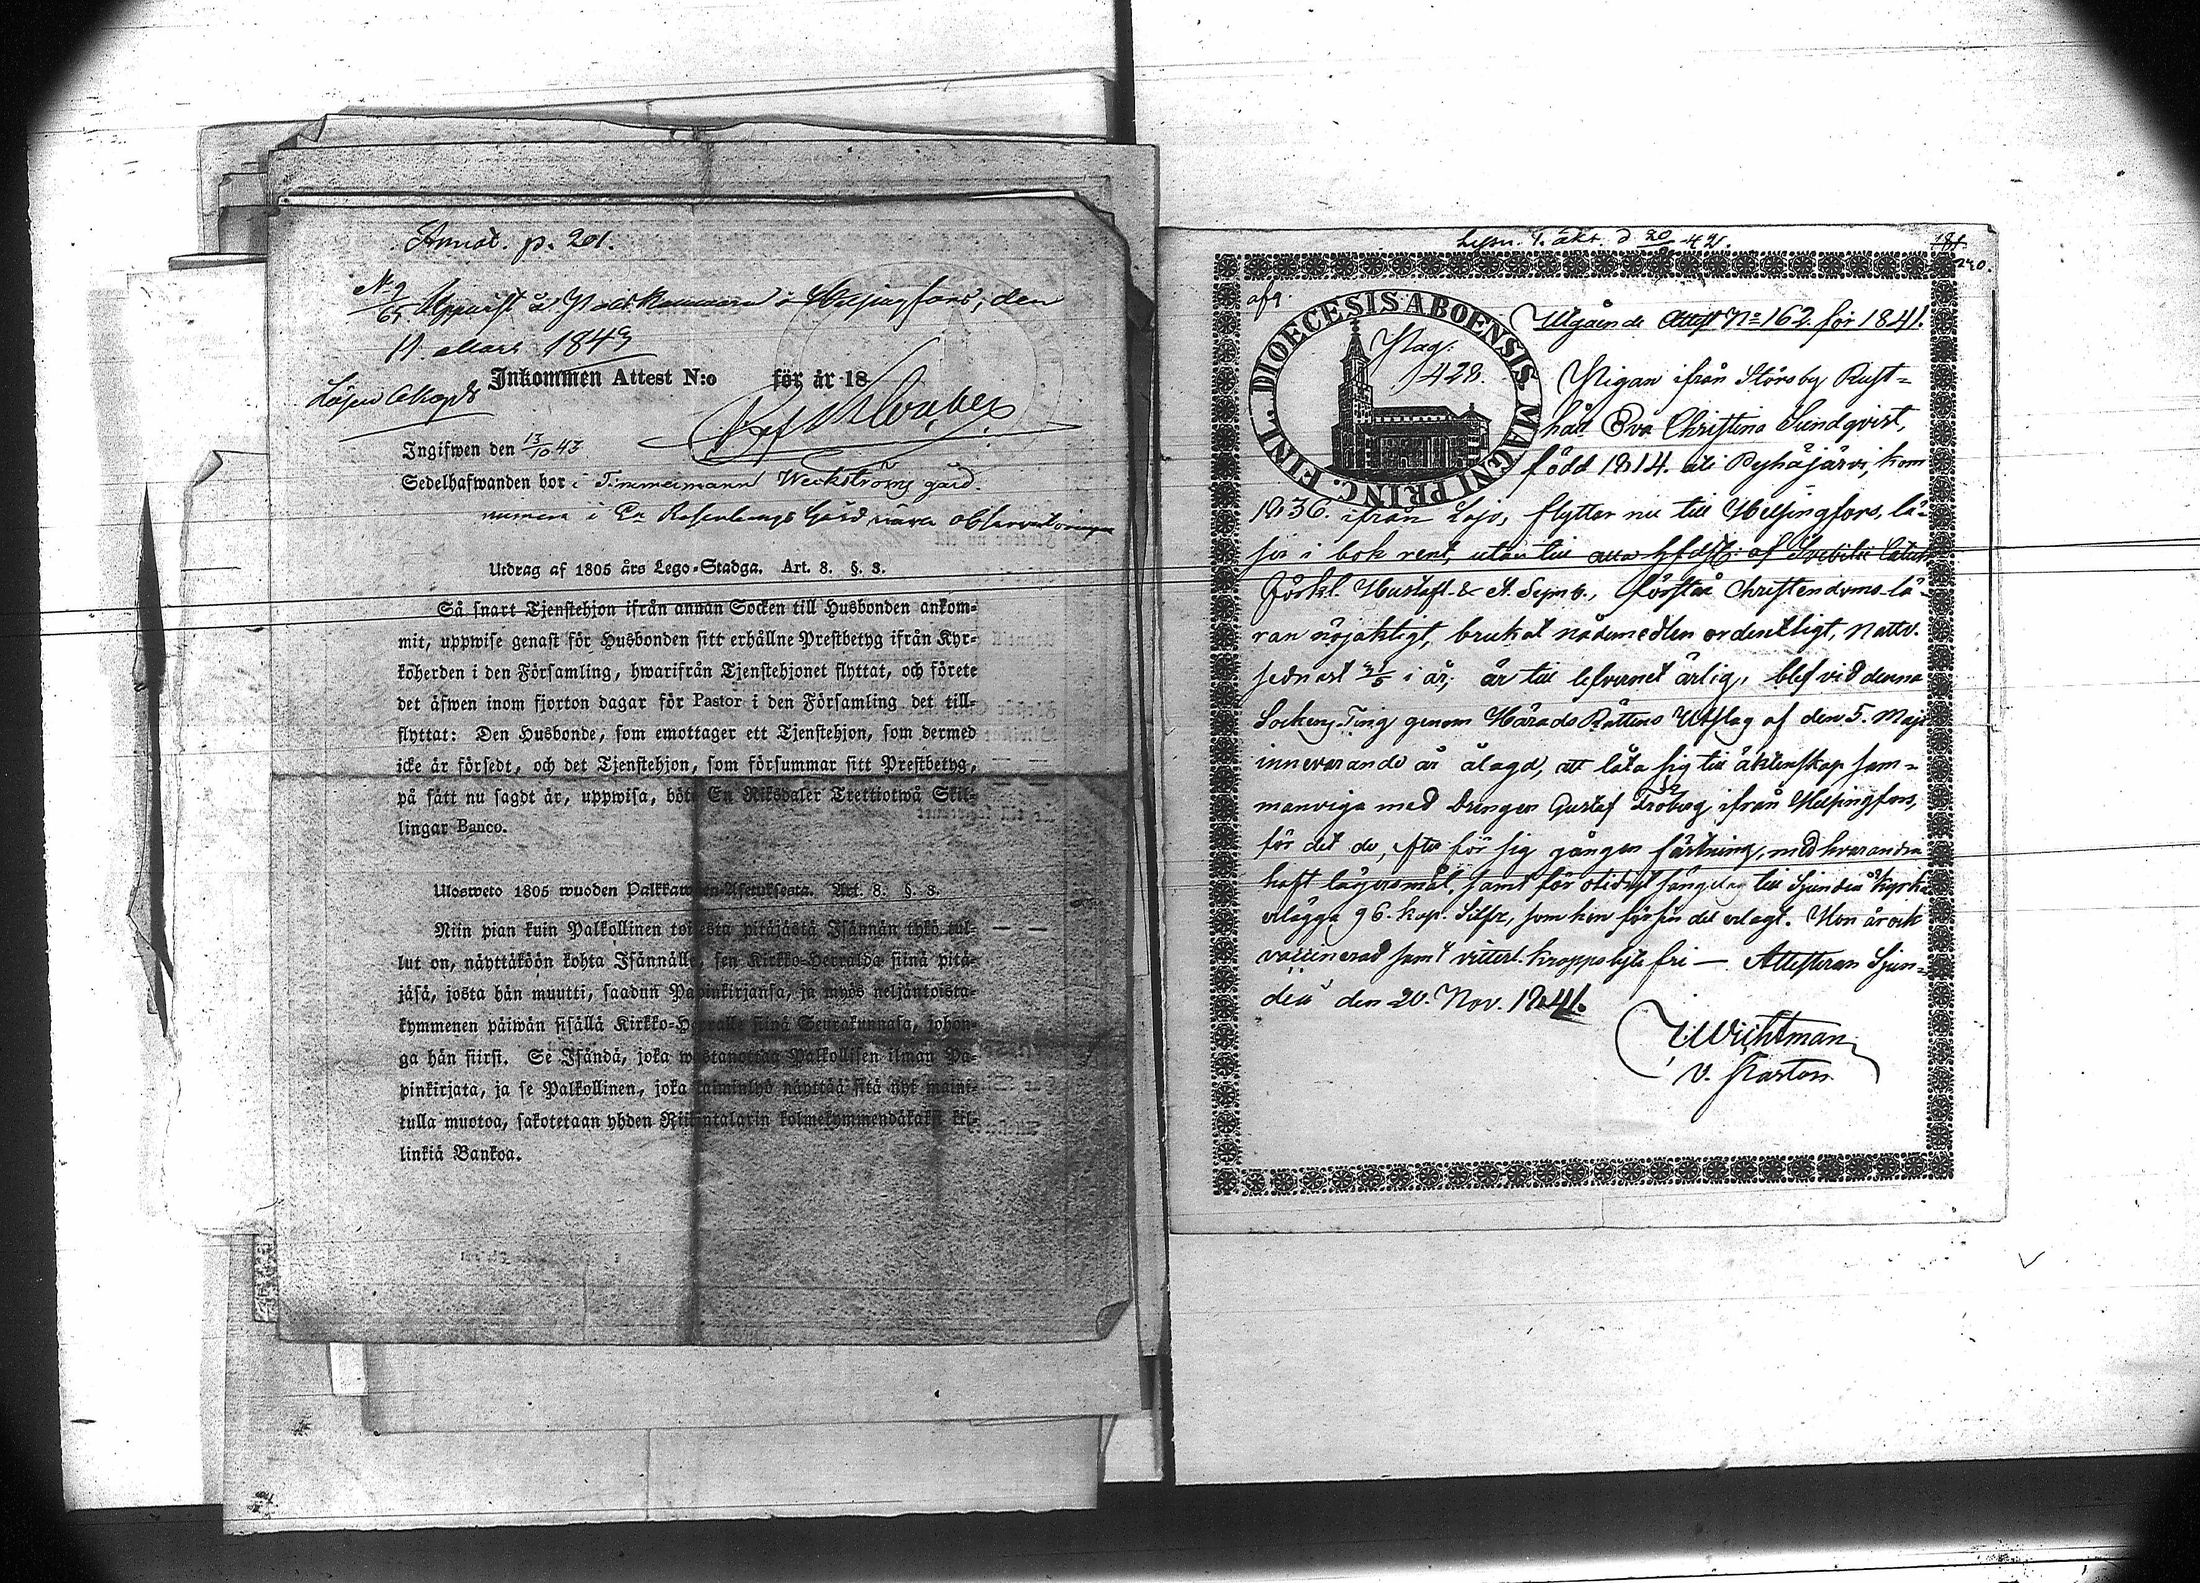 Annot. p. 201.
N 9/65 Uppvist å Poliskammaren i Helsingfors, den
11. Mars 1843
Inkommen Attest N:o för år 18
Ingifwen den 13/10 43
Sedelhafwanden bor i Timmerman Weckströms gård.
numera i En Rosenbergs Gård nära observatorium
Utdrag af 1805 års Lego-Stadga. Art. 8. §. 3.
Så snart Tjenstehjon ifrån annan Socken till Husbonden ankom-
mit, uppwise genast för Husbonden sitt erhållne Prestbetyg ifrån Kyr-
koherden i den Församling, hwarifrån Tjenstehjonet flyttat, och förete
det äfwen inom fjorton dagar för Pastor i den Församling det till-
flyttat: Den Husbonde, som emottager ett Tjenstehjon, som dermed
icke är försedt, och det Tjenstehjon, som försummar sitt Prestbetyg,
på sätt nu sagdt är, uppwisa, böte En Riksdaler Trettiotwå Skil-
lingar Banco.
Ulosweto 1805 wuoden Palkkawäen-Asetuksesta. Art. 8. §. 3.
Niin pian kuin Palkollinen toisesta pitäjästä Isännän tykö tul-
lut on, näyttäköön kohta Isännälle, sen Kirkko-Herralda siinä pitä-
jäsä, josta hän muutti, saadun Papinkirjansa, ja myös neljäntoista-
kymmenen päiwän sisällä Kirkko-Herralle siinä Seurakunnasa, johon-
ga hän siirsi. Se Isändä, joka wastanottaa Palkollisen ilman Pa-
pinkirjata, ja se Palkollinen, joka laiminlyö näyttää sitä nyt maini-
tulla muotoa, sakotetaan yhden Riikintalarin kolmekymmendäkaksi kil-
linkiä Bankoa.
240.
afg.
FINL. DIOECESIS ABOENSIS MAGNI PRINC.
Pag.
428.
Utgående Attest No 162 för 1841.
Pigan ifrån Störsby Rust-
håll Eva Christina Sundqvist,
född 1814. uti Pyhäjärvi, kom
1836. ifrån Lojo, flyttar nu till Helsingfors, lä-
ser i bok rent, utan till alla hfdst: af Svebilii Catech
Förkl. Hustafl. & A. Symb., förstår Christendoms lä-
ran nöjaktigt, brukat nådemedlen ordentligt, Nattv.
sednast i år, är till lefvernet ärlig, blef vid denna
Sockens Ting genom Härads Rättens Utslag af den 5. Maji
innevarande år ålagd, att låta sig till äktenskap sam-
manviga med Drengen Gustaf Fröberg ifrån Helsingfors,
för det de, efter för sig gången fästning, med hvarandra
haft lägersmål, samt för otidigt sängelag till Sjundeå Kyrka
erlägga 96. kop. Silfr, som hon för sin del erlagt. Hon är ock
vaccinerad samt vitterl. kroppslyte fri — Attesteras Sjun-
deå den 20. Nov. 1841.
Wichtman
v. Pastor.